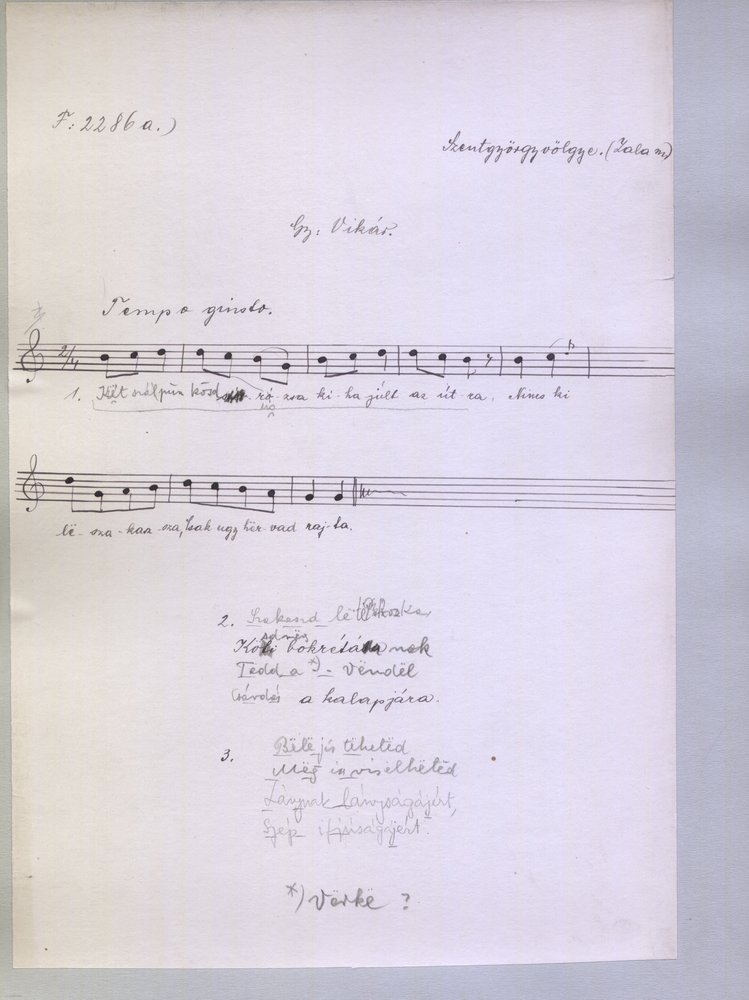 F: 2286 a.)
Szentgyörgyvölgye. (Zala m.)
Gy: Vikár.
Tempo giusto.
2/4
1. Két szál pün kösd ró- zsa ki- ha- júlt az út- ra, Nincs ki
lë- sza- kaz- sza, Csak ugy hër- vad raj- ta.
2. Szakaszd lë
bokrétának
Tëdd a *) - Vëndël
Csárdés a kalapjára.
3. Bëlë jis tëhetëd
Mëg is viselhetëd
Lánynak lányságájért,
Szép ifjúságájért.
*) Vërkë ?